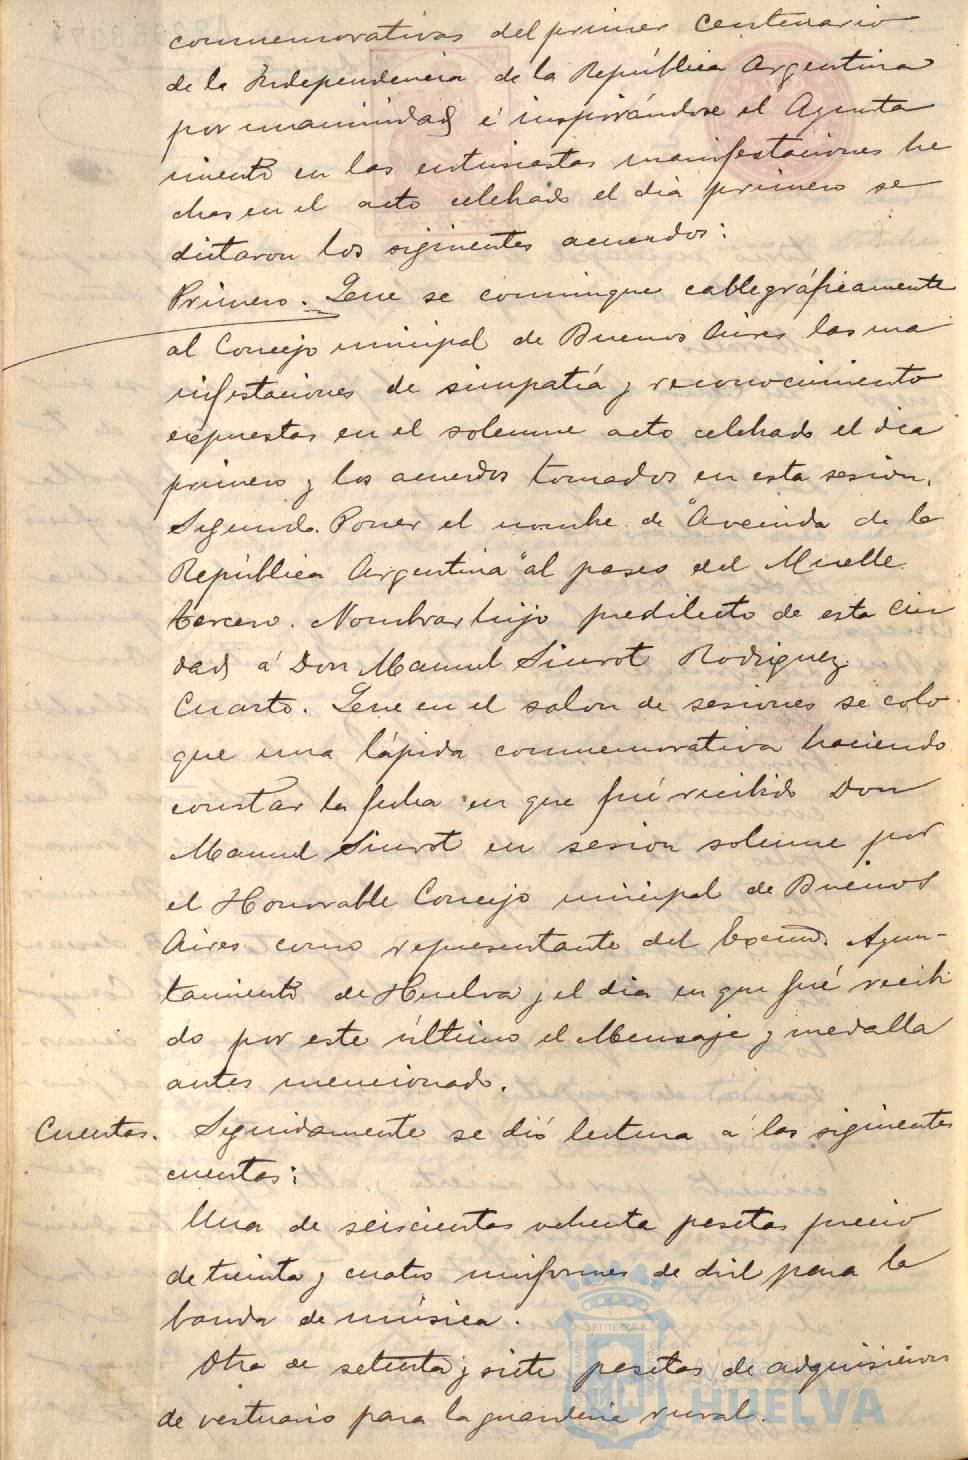 conmemorativas del primer Centenario
de la Independencia de la República Argentina
por unanimidad é inspirándose el Ayunta
miento en las entusiastas manifestaciones he
chas en el acto celebrado el dia primero se
dictaron los siguientes acuerdos:
Primero. Que se comunique cablegráficamente
al Concejo municipal de Buenos Aires las ma
nifestaciones de simpatía y reconocimiento
expuestas en el solemne acto celebrado el dia
primero y los acuerdos tomados en esta sesion.
Segundo. Poner el nombre de "Avenida de la
República Argentina" al paseo del Muelle.
tercero. Nombrar hijo predilecto de esta Ciu
dad á Don Manuel Siurot Rodriguez
Cuarto. Que en el salon de sesiones se colo
que una lápida conmemorativa haciendo
constar la fecha en que fué recibido Don
Manuel Siurot en sesion solemne por
el Honorable Concejo municipal de Buenos
Aires como representante del Excmo. Ayun-
tamiento de Huelva y el dia en que fué recibi
do por este último el Mensaje y medalla
antes mencionado.
Cuentas. Seguidamente se dió lectura á las siguientes
cuentas:
Una de seiscientas ochenta pesetas precio
de treinta y cuatro uniformes de dril para la
banda de música.
Otra de setenta y siete pesetas de adquisicion
de vestuario para la guarderia rural.
HUELVA